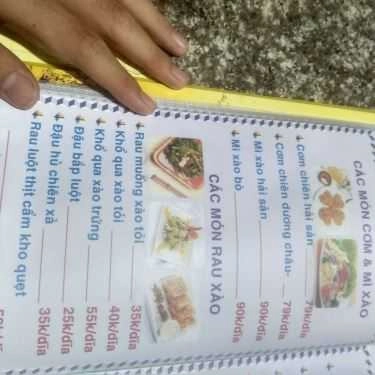 CÁC MÓN CƠM & MÌ XÀO
Cơm chiên hải sản 79k/dĩa
Cơm chiên dương châu 79k/dĩa
Mì xào hải sản 90k/dĩa
Mì xào bò 90k/dĩa
CÁC MÓN RAU XÀO
Rau muống xào tỏi 35k/dĩa
Khổ qua xào tỏi 40k/dĩa
Khổ qua xào trứng 55k/dĩa
Đậu bắp luột 25k/dĩa
Đậu hủ chiên xả 35k/dĩa
Rau luột thịt cẩm kho quẹt